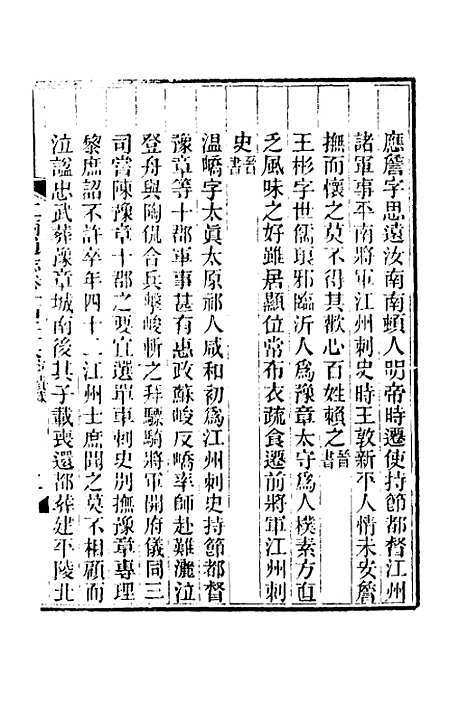 應詹字思遠汝南南頓人明帝時遷使持節都督江州
諸軍事平南將軍江州刺史時王敦新平人情未安詹
撫而懷之莫不得其歡心百姓賴之晉書
王彬字世儒琅邪臨沂人爲豫章太守爲人樸素方直
乏風味之好雖居顯位常布衣疏食遷前將軍江州刺
史晉書
溫嶠字太眞太原祁人咸和初爲江州刺史持節都督
豫章等十郡軍事甚有惠政蘇峻反嶠率師赴難灑泣
登舟與陶侃合兵擊峻斬之拜驃騎將軍開府儀同三
司嘗陳豫章十郡之要宜選單車刺史別撫豫章專理
黎庶詔不許卒年四十二江州士庶聞之莫不相顧而
泣諡忠武葬豫章城南後其子載喪還都葬建平陵北